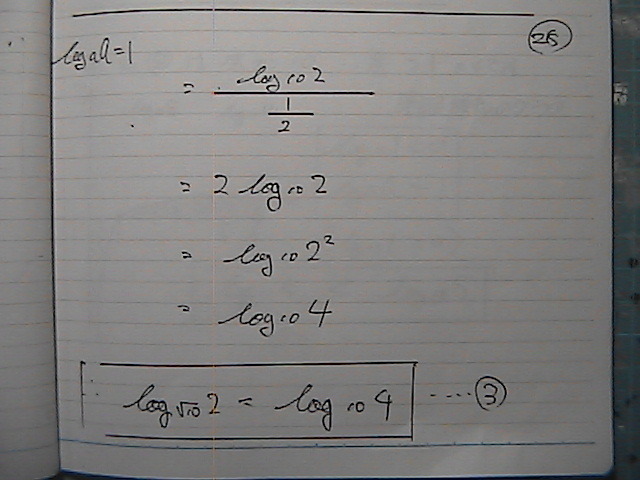 26
logₐa=1
= log₁₀2 / (1/2)
= 2 log₁₀2
= log₁₀2²
= log₁₀4
∴ log√₁₀2 = log₁₀4 ····· ③